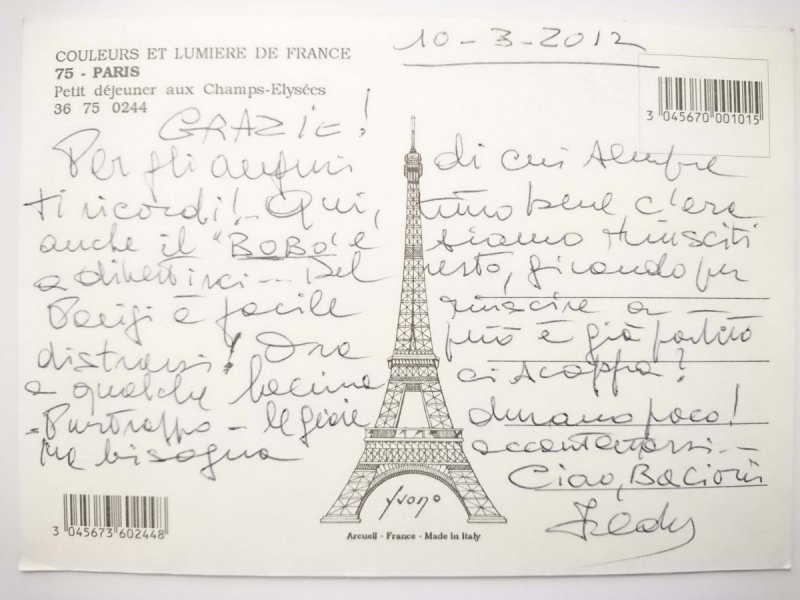 COULEURS ET LUMIERE DE FRANCE
75 - PARIS
Petit déjeuner aux Champs-Elysées
36 75 0244
10-3-2012
3 045670 001015
GRAZIE!
Per gli auguri di cui sempre
ti ricordi!- Qui, tutto bene c'era
anche il "BOBO" e siamo riusciti
a divertirci... Del resto, girando per
Parigi è facile riuscire a -
distrarsi! Ora però è già partito
e qualche lacrima ci scappa?
- Purtroppo - le gioie durano poco!
Ma bisogna accontentarsi --
Ciao, Bacioni
yvono
3 045673 602448
Arcueil - France - Made in Italy